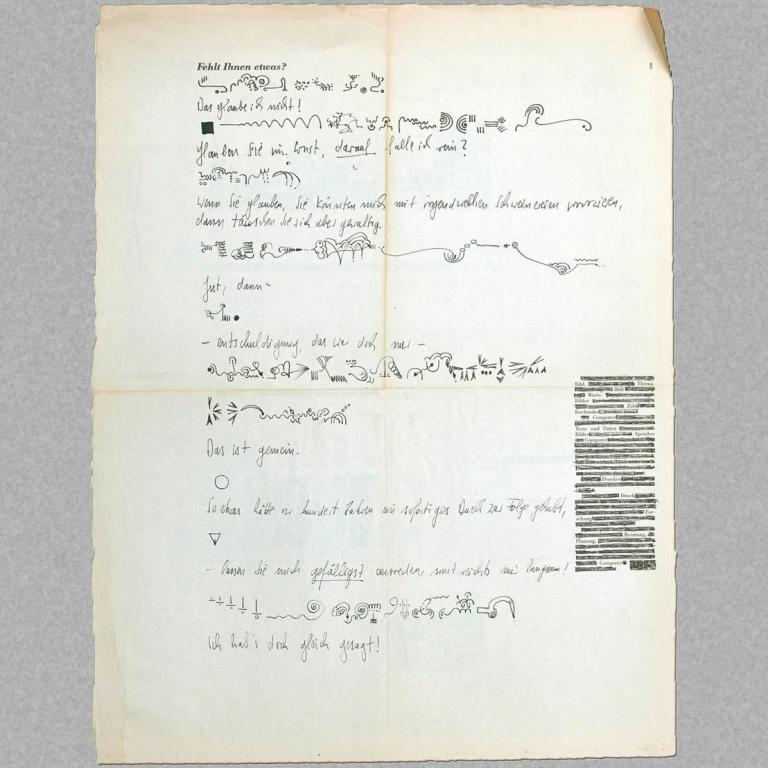 Fehlt Ihnen etwas?
Das glaube ich nicht!
Glauben Sie im Ernst, darauf falle ich rein?
Wenn Sie glauben, Sie könnten mich mit irgendwelchen Schweinereien provozieren,
dann täuschen Sie sich aber gewaltig.
Gut, dann -
- entschuldigung, das war doch nur -
Das ist gemein.
So etwas hätte vor hundert Jahren ein sofortiges Duell zur Folge gehabt,
- lassen Sie mich gefälligst ausreden, sonst
ich hab's doch gleich gesagt!
Bild. Thema.
Bild
Worte.
Bilder Zahl
Buchstabe
Computer
Texte und Daten
Bilder Speicher
Computer
Drucker
Druck
Beratung,
Planung,
Computer